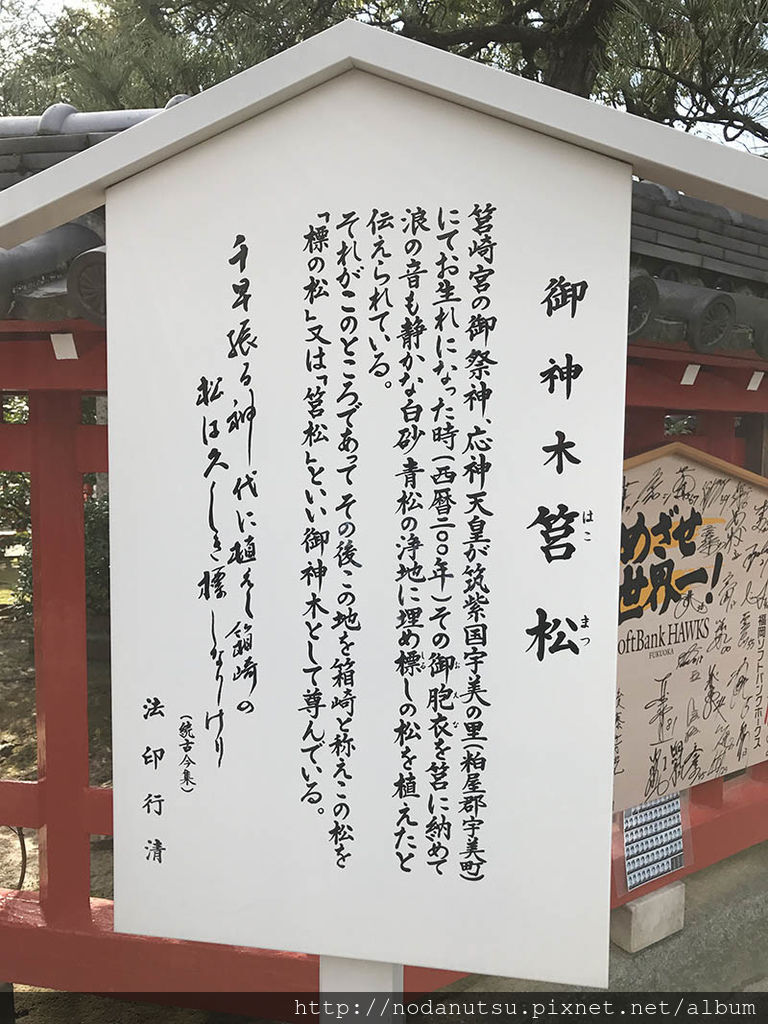 御神木筥松
はこ
まつ
筥崎宮の御祭神、応神天皇が筑紫国宇美の里(粕屋郡宇美町)
にてお生れになった時(西暦二〇〇年)その御胞衣を筥に納めて
おんえな
浪の音も静かな白砂青松の浄地に埋め標しの松を植えたと
しる
伝えられている。
それがこのところであってその後この地を箱崎と称えこの松を
「標の松」又は「筥松」といい御神木として尊んでいる。
千早振る神代に植えし箱崎の
松は久しき標しなりけり
(続古今集)
法印行清
めざせ
世界一!
SoftBank HAWKS
FUKUOKA
福岡ソフトバンクホークス
http://nodanutsu.pixnet.net/album